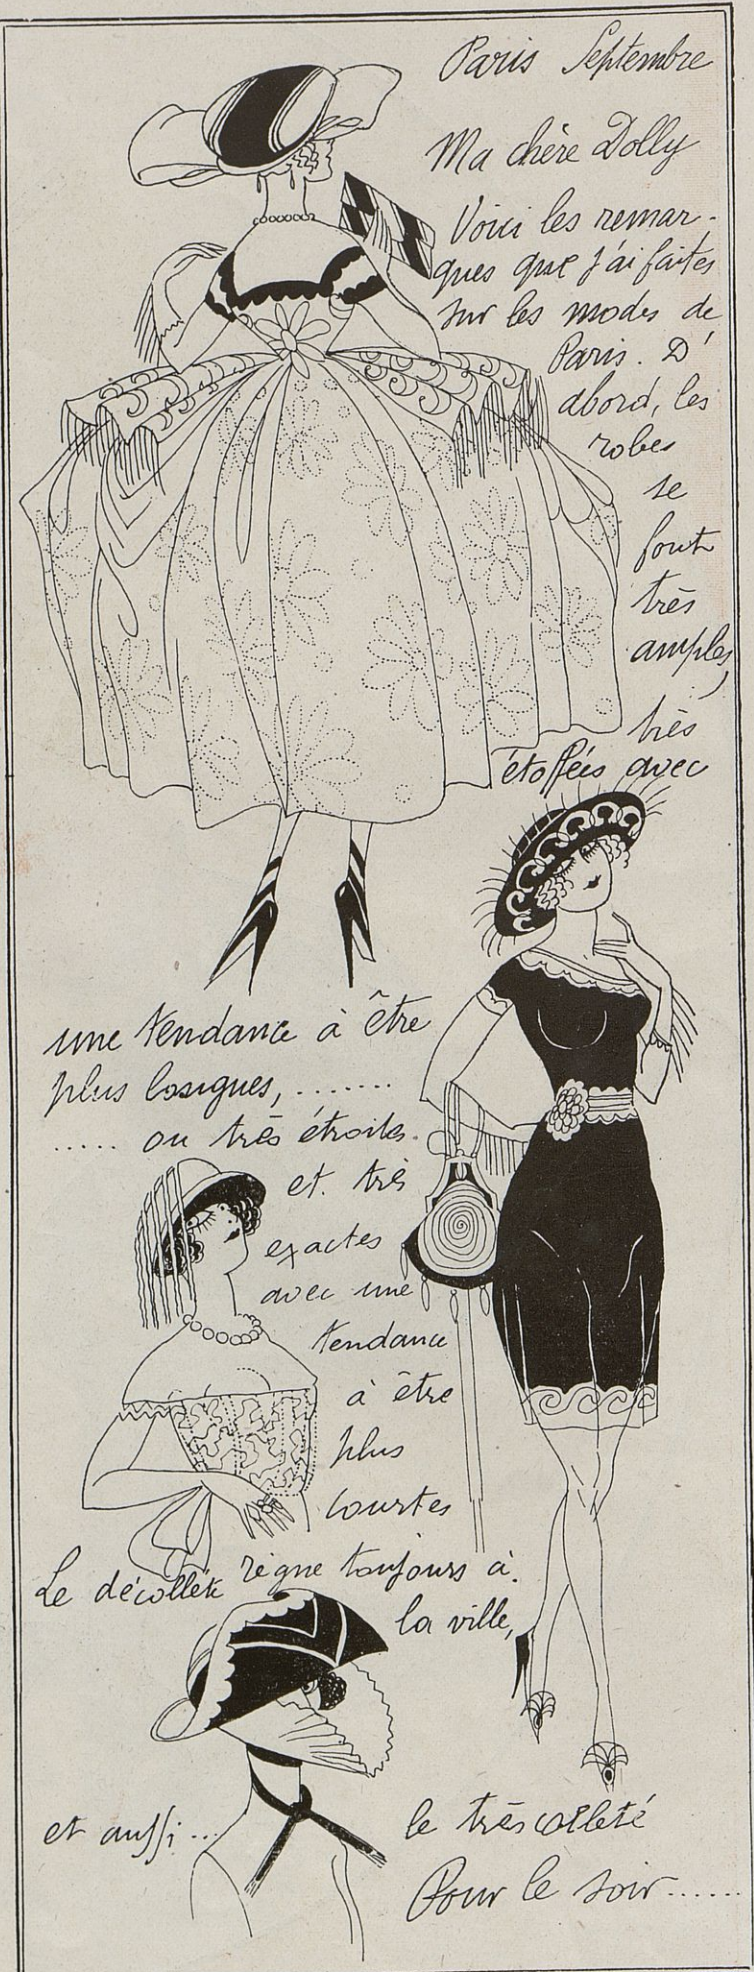 Paris Septembre
Ma chère Dolly
Voici les remar-
ques que j'ai faites
sur les modes de
Paris. D'
abord, les
robes
se
font
très
amples,
très
étoffées avec
une tendance à être
plus longues, .......
..... ou très étroites.
et très
exactes
avec une
tendance
à être
plus
courtes
Le décolleté règne toujours à
la ville,
et aussi...
le très colleté
Pour le soir......